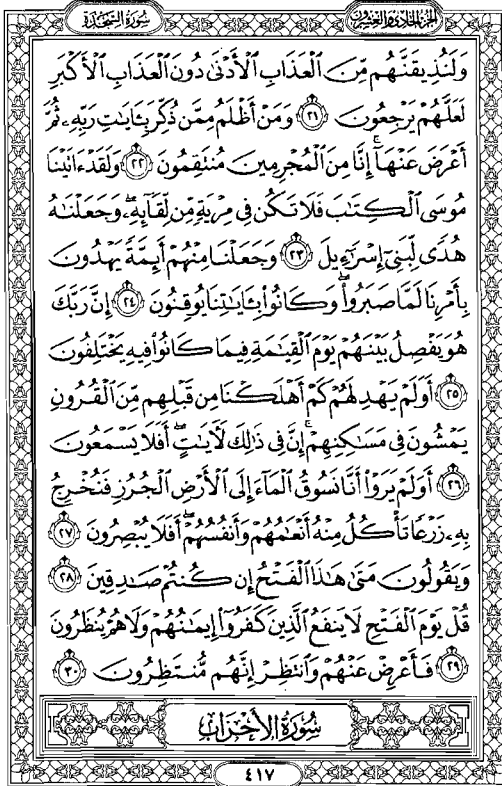 الجزء الحادي والعشرون
سورة السجدة
وَلَنُذِيقَنَّهُم مِّنَ ٱلْعَذَابِ ٱلْأَدْنَىٰ دُونَ ٱلْعَذَابِ ٱلْأَكْبَرِ
لَعَلَّهُمْ يَرْجِعُونَ ٢١ وَمَنْ أَظْلَمُ مِمَّن ذُكِّرَ بِـَٔايَٰتِ رَبِّهِۦ ثُمَّ
أَعْرَضَ عَنْهَآ ۚ إِنَّا مِنَ ٱلْمُجْرِمِينَ مُنتَقِمُونَ ٢٢ وَلَقَدْ ءَاتَيْنَا
مُوسَى ٱلْكِتَٰبَ فَلَا تَكُن فِى مِرْيَةٍ مِّن لِّقَآئِهِۦ ۖ وَجَعَلْنَٰهُ
هُدًى لِّبَنِىٓ إِسْرَٰٓءِيلَ ٢٣ وَجَعَلْنَا مِنْهُمْ أَئِمَّةً يَهْدُونَ
بِأَمْرِنَا لَمَّا صَبَرُوا۟ ۖ وَكَانُوا۟ بِـَٔايَٰتِنَا يُوقِنُونَ ٢٤ إِنَّ رَبَّكَ
هُوَ يَفْصِلُ بَيْنَهُمْ يَوْمَ ٱلْقِيَٰمَةِ فِيمَا كَانُوا۟ فِيهِ يَخْتَلِفُونَ
٢٥ أَوَلَمْ يَهْدِ لَهُمْ كَمْ أَهْلَكْنَا مِن قَبْلِهِم مِّنَ ٱلْقُرُونِ
يَمْشُونَ فِى مَسَٰكِنِهِمْ ۚ إِنَّ فِى ذَٰلِكَ لَءَايَٰتٍ ۖ أَفَلَا يَسْمَعُونَ
٢٦ أَوَلَمْ يَرَوْا۟ أَنَّا نَسُوقُ ٱلْمَآءَ إِلَى ٱلْأَرْضِ ٱلْجُرُزِ فَنُخْرِجُ
بِهِۦ زَرْعًا تَأْكُلُ مِنْهُ أَنْعَٰمُهُمْ وَأَنفُسُهُمْ ۖ أَفَلَا يُبْصِرُونَ ٢٧
وَيَقُولُونَ مَتَىٰ هَٰذَا ٱلْفَتْحُ إِن كُنتُمْ صَٰدِقِينَ ٢٨
قُلْ يَوْمَ ٱلْفَتْحِ لَا يَنفَعُ ٱلَّذِينَ كَفَرُوٓا۟ إِيمَٰنُهُمْ وَلَا هُمْ يُنظَرُونَ
٢٩ فَأَعْرِضْ عَنْهُمْ وَٱنتَظِرْ إِنَّهُم مُّنتَظِرُونَ ٣٠
سُورَةُ الْأَحْزَابِ
٤١٧